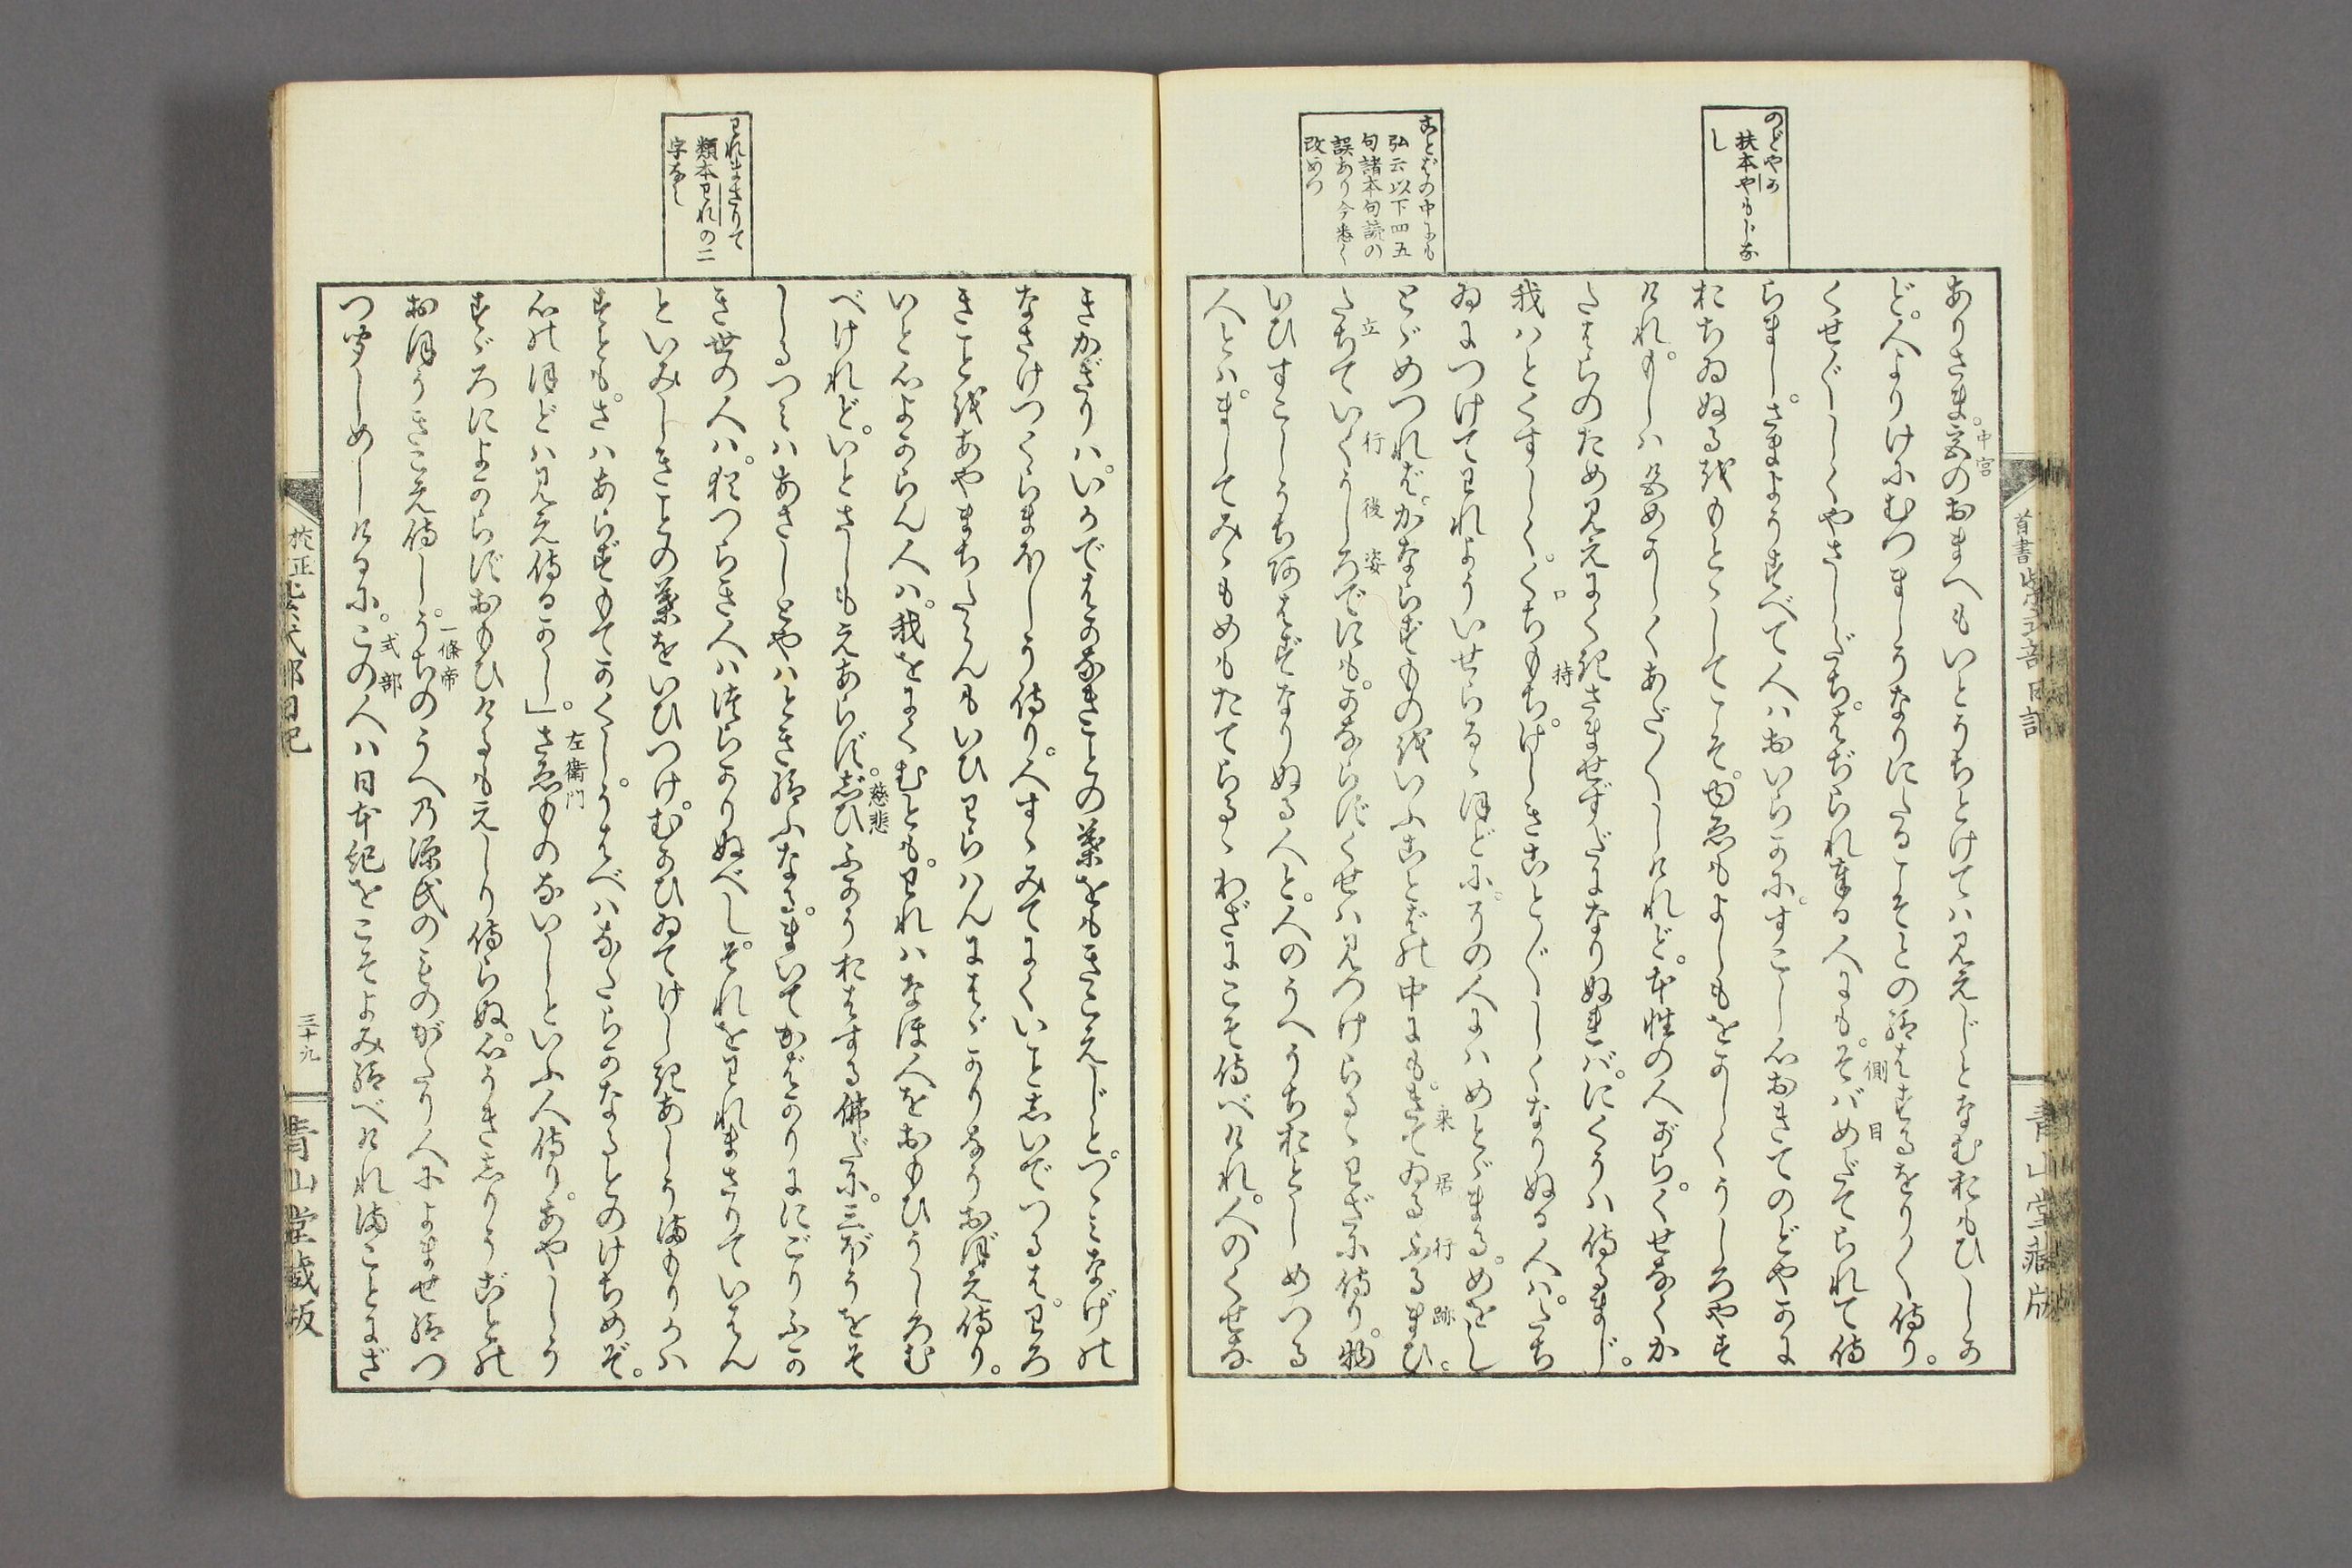 のどやか
扶本やもじな
し
ことばの中にも
弘云以下四五
句諸本句読の
誤あり今悉く
改めつ
ありさま。宮のおまへもいとうちとけてハ見えじとなむおもひしか
中宮
ど。人よりけにむつましうなりにたるこそとの給はするをり〱侍り。
くせ〲しくやさしだち。はぢられ奉る人にも。そバめだてられて侍
側目
らまし。さまようすべて人ハおいらかに。すこし心おきてのどやかに
おちゐぬるをもとゝしてこそ。ゆゑもよしもをかしくうしろやす
けれ。もしハ色めかしくあだ〱しけれど。本性の人がら。くせなくか
たはらのため見えにくきさませずだになりぬれバ。にくうハ侍るまじ。
我ハとくすしく。くちもち。けしきことごとしくなりぬる人ハ。たち
持
ゐにつけてわれよういせらるゝほどに。その人にハめとゞまる。めをし
とゞめつれば。かならずものをいふことばの中にも。きてゐるふるまひ。
来居行跡
たちていくうしろでにも。かならずくせハ見つけらるゝわざに侍り。物
立行後姿
いひすこしうちあはずなりぬる人と。人のうへうちおとしめつる
人とハ。ましてみゝもめもたてらるゝわざにこそ侍べけれ。人のくせな
首書紫式部日記
青山堂蔵版
われまさりて
類本われの二
字なし
きかぎりハ。いかではかなきことの葉をもきこえじと。つゝみなげの
なさけつくらまほしう侍り。人すゝみてにくいことしいでつるは。わろ
きことをあやまちたらんもいひわらハんにはゞかりなうおぼえ侍り。
いと心よからん人ハ。我をにくむとも。われハなほ人をおもひうしろむ
べけれど。いとさしもえあらず。慈ひふかうおはする佛だに。三ぼうをそ
慈悲
しるつみハあさしとやハとき給ふなる。まいてかばかりににごりふか
き世の人ハ。猶つらき人ハつらかりぬべし。それをわれまさりていはん
といみじきことの葉をいひつけ。むかひゐてけしきあしうまもりかハ
すとも。さハあらずもてかくし。うはべハなだらかなるとのけぢめぞ。
心のほどハ見え侍るかし」。さゑものないしといふ人侍り。あやしう
左衛門
すゞろによからずおもひけるもえしり侍らぬ。心うきしりうごとの
おほうきこえ侍し。うちのうへの源氏のものがたり人によませ給つ
一條帝
つ聞しめしけるに。この人ハ日本紀をこそよみ給べけれまことにざ
式部
校正紫式部日記
三十九
青山堂蔵版